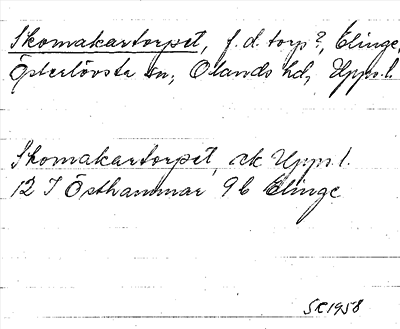 Skomakartorpet, f.d. torp?, Elinge,
Österlövsta sn, Olands hd, Upps.l.
Skomakartorpet, ek Upps.l.
12 I Östhammar 9b Elinge
SE1958